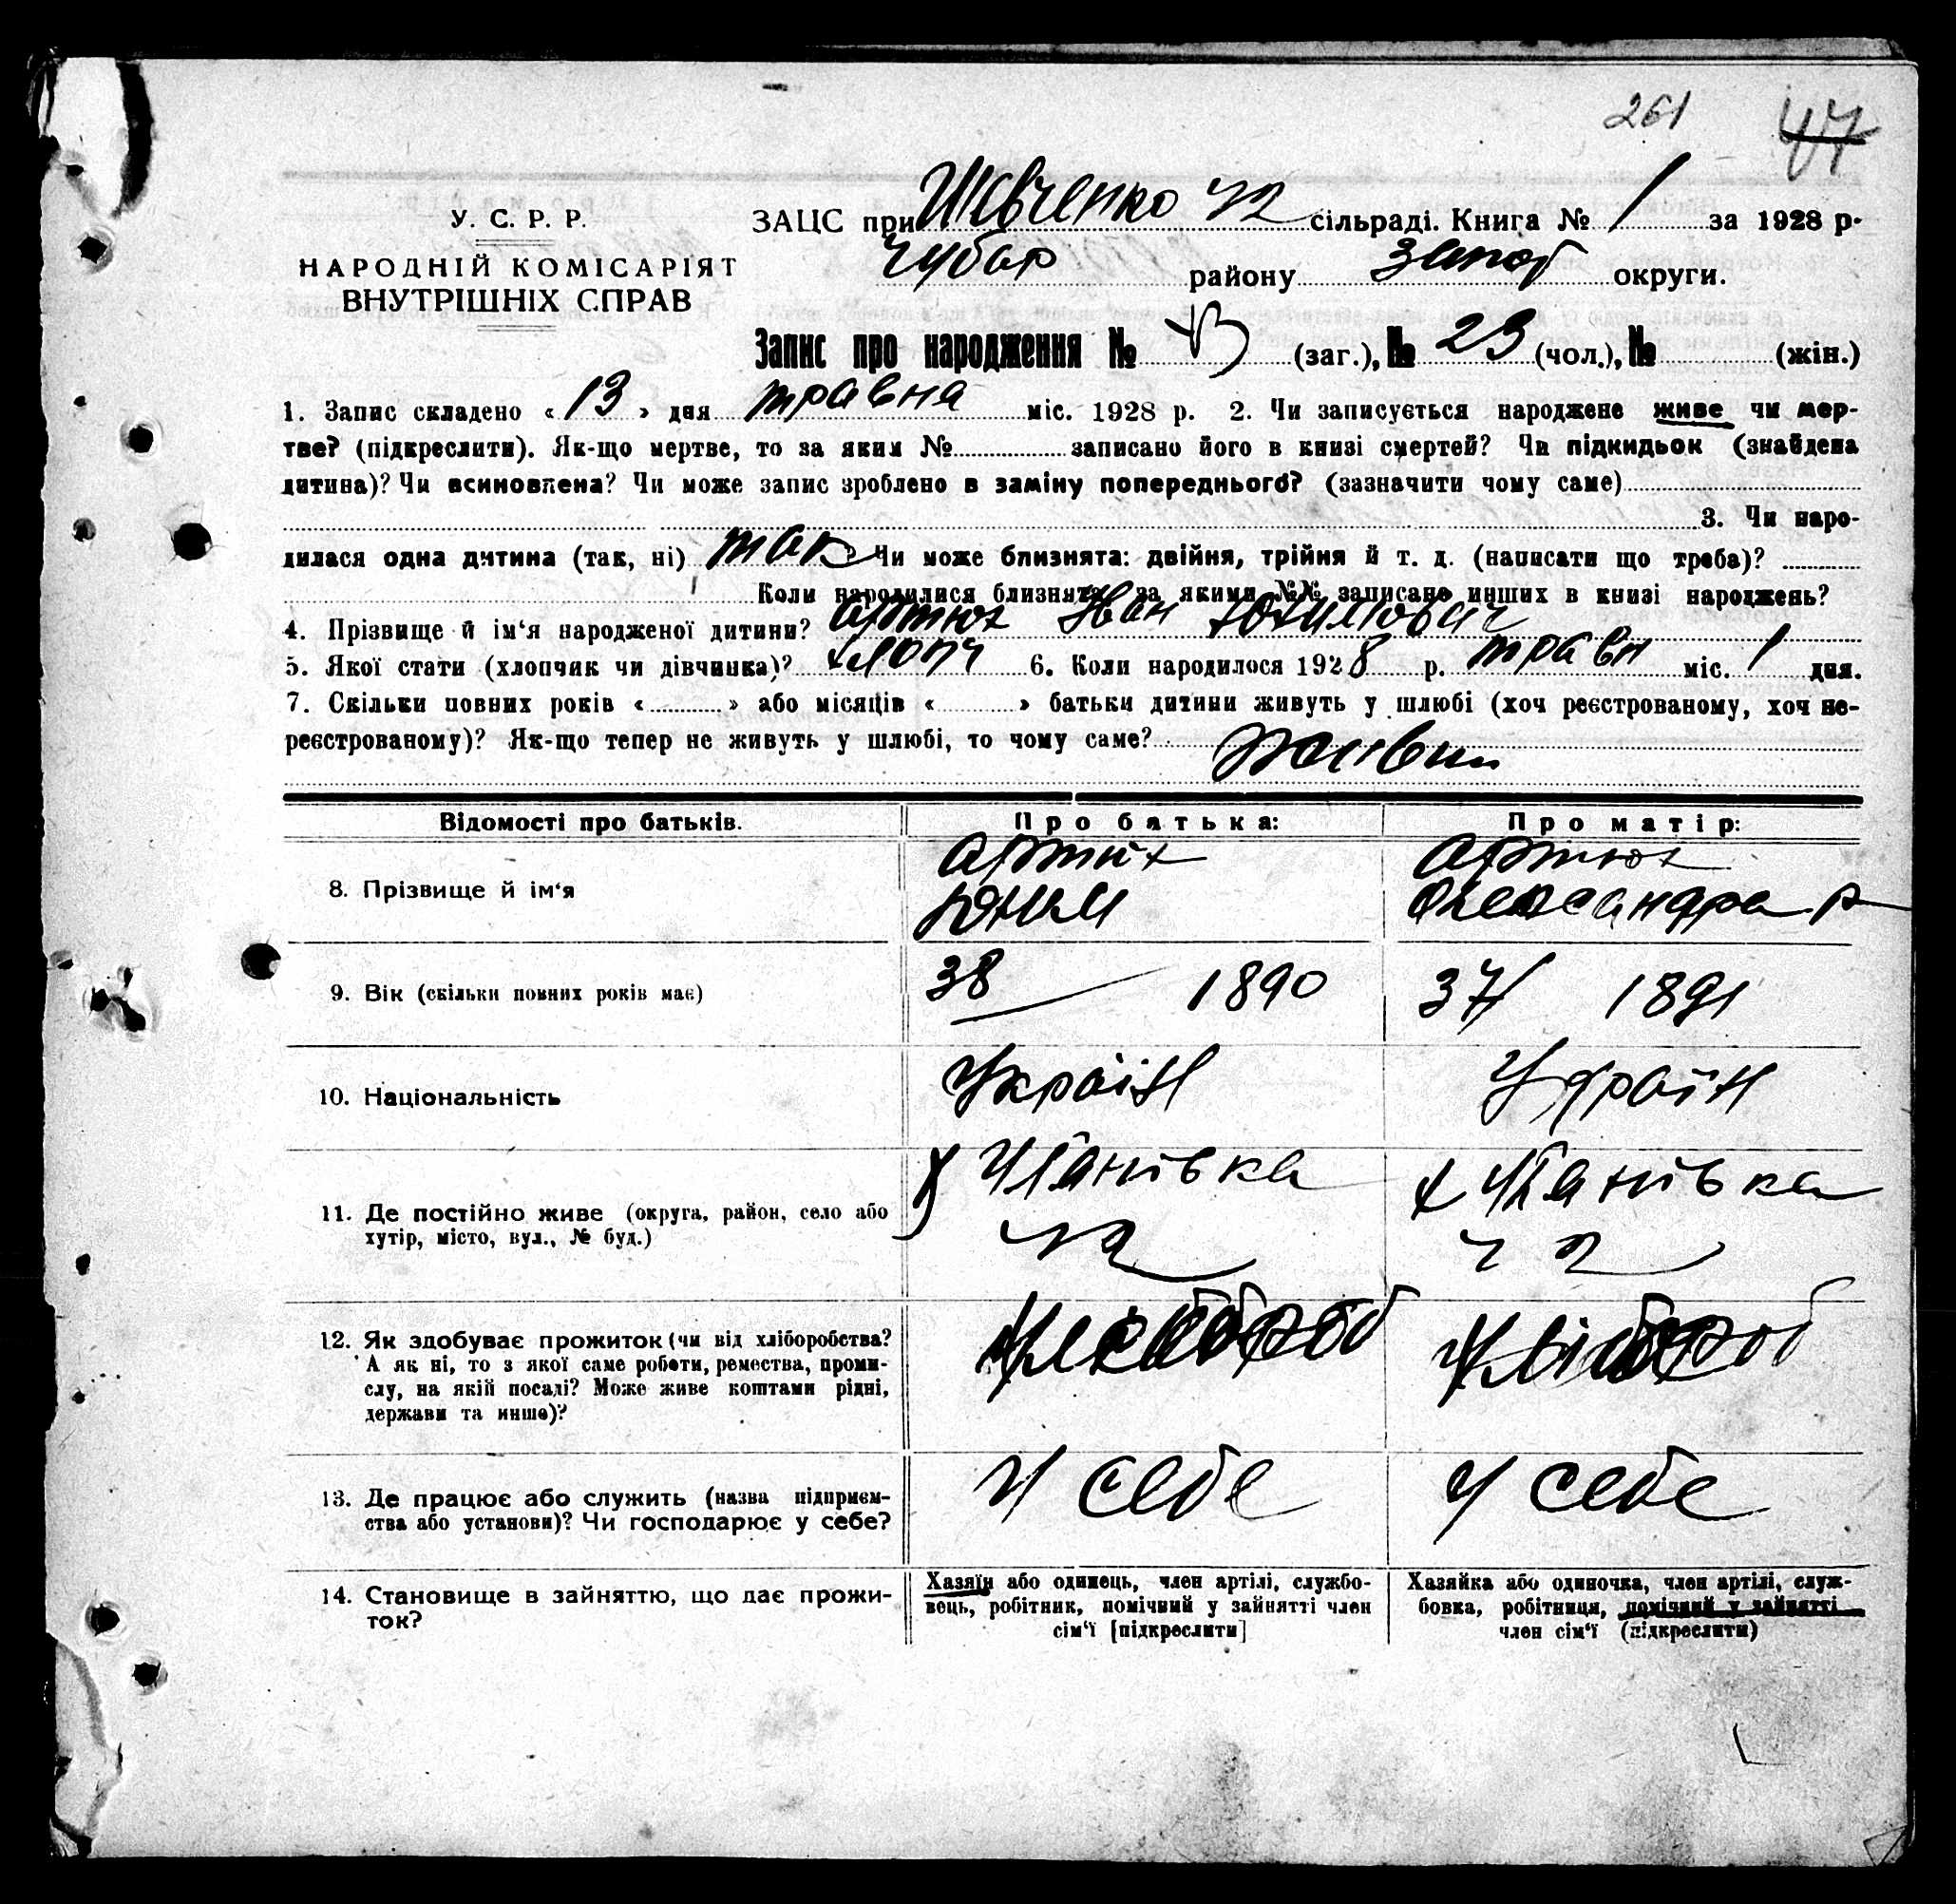 261 47
У. С. Р. Р.
НАРОДНІЙ КОМІСАРІЯТ
ВНУТРІШНІХ СПРАВ
ЗАЦС при Шевченко ч2 сільраді. Книга № 1 за 1928 р.
Чубар району Запор округи.
Запис про народження № (заг.), № 23 (чол.), № (жін.)
1. Запис складено « 13 » дня травня міс. 1928 р. 2. Чи записується народжене живе чи мер-
тве? (підкреслити). Як-що мертве, то за яким № записано його в книзі смертей? Чи підкидьок (знайдена
дитина)? Чи всиновлена? Чи може запис зроблено в заміну попереднього? (зазначити чому саме)
3. Чи наро-
дилася одна дитина (так, ні) так Чи може близнята: двійня, трійня й т. д. (написати що треба)?
Коли народилися близнята, за якими №№ записано инших в книзі народжень?
4. Прізвище й ім‘я народженої дитини? Артюх Іван Юхимович
5. Якої стати (хлопчик чи дівчинка)? хлопч 6. Коли народилося 1928 р. травн міс. 1 дня.
7. Скільки повних років « » або місяців « » батьки дитини живуть у шлюбі (хоч реєстрованому, хоч не-
реєстрованому)? Як-що тепер не живуть у шлюбі, то чому саме?
Відомості про батьків. Про батька: Про матір:
8. Прізвище й ім‘я
Артюх
Юхим
Артюх
Олександра
9. Вік (скільки повних років має)
38 1890
37 1891
10. Національність
Україн
Україн
11. Де постійно живе (округа, район, село або
хутір, місто, вул., № буд.)
ч2
ч 2
12. Як здобуває прожиток (чи від хліборобства?
А як ні, то з якої саме роботи, ремества, проми-
слу, на якій посаді? Може живе коштами рідні,
держави та инше)?
Хлібороб
Хлібороб
13. Де працює або служить (назва підприєм-
ства або установи)? Чи господарює у себе?
У себе
У себе
14. Становище в зайняттю, що дає прожи-
ток?
Хазяїн або одинець, член артілі, службо-
вець, робітник, помічний у зайнятті член
сім‘ї [підкреслити]
Хазяйка або одиночка, член артілі, служ-
бовка, робітниця, помічний у зайнятті
член сім‘ї (підкреслити)